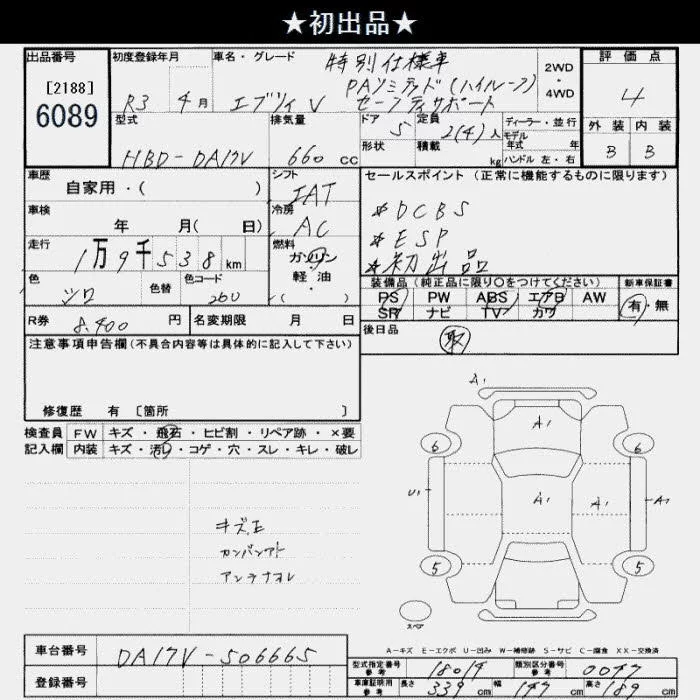 ★初出品★
出品番号
[2188]
6089
初度登録年月
R3 4月
車名・グレード
特別仕様車
エブリイ V PAリミテッド(ハイルーフ)
セーフティサポート
2WD
・
4WD
評価点
4
外装 内装
B B
型式
HBD-DA17V
排気量
660 cc
ドア
5
形状
定員
積載
2(4)人
kg
ディーラー・並行
モデル
年式 年
ハンドル 左・右
車歴
自家用・( )
シフト
IAT
車検
年 月( 日)
冷房
AC
走行
1万9千538km
燃料
ガソリン
軽・油
・( )
色
シロ
色替
色コード
26U
R券
8.400 円
名変期限 月 日
セールスポイント (正常に機能するものに限ります)
*DCBS
*ESP
*初出品
装備品 (純正品に限り○をつけてください)
PS PW ABS エアB AW
SR ナビ TV カワ
新車保証書
有・無
後日品
取
注意事項申告欄(不具合内容等は具体的に記入して下さい)
修復歴 有 〔箇所 〕
検査員
記入欄
FW キズ・飛石・ヒビ割・リペア跡・×要
内装 キズ・汚れ・コゲ・穴・スレ・キレ・破レ
キズ エ
カンバンアト
アンテナオレ
A1
A1
6 6
U1 A1 A1 A1
5 5
スペア
A-キズ E-エクボ U-凹み W-補修跡 S-サビ C-腐食 XX-交換済
車台番号
DA17V-506665
登録番号
型式指定番号
参考
18019
類別区分番号
参考
0047
車庫証明用
参考
長さ 339 cm
幅 147 cm
高さ 189 cm